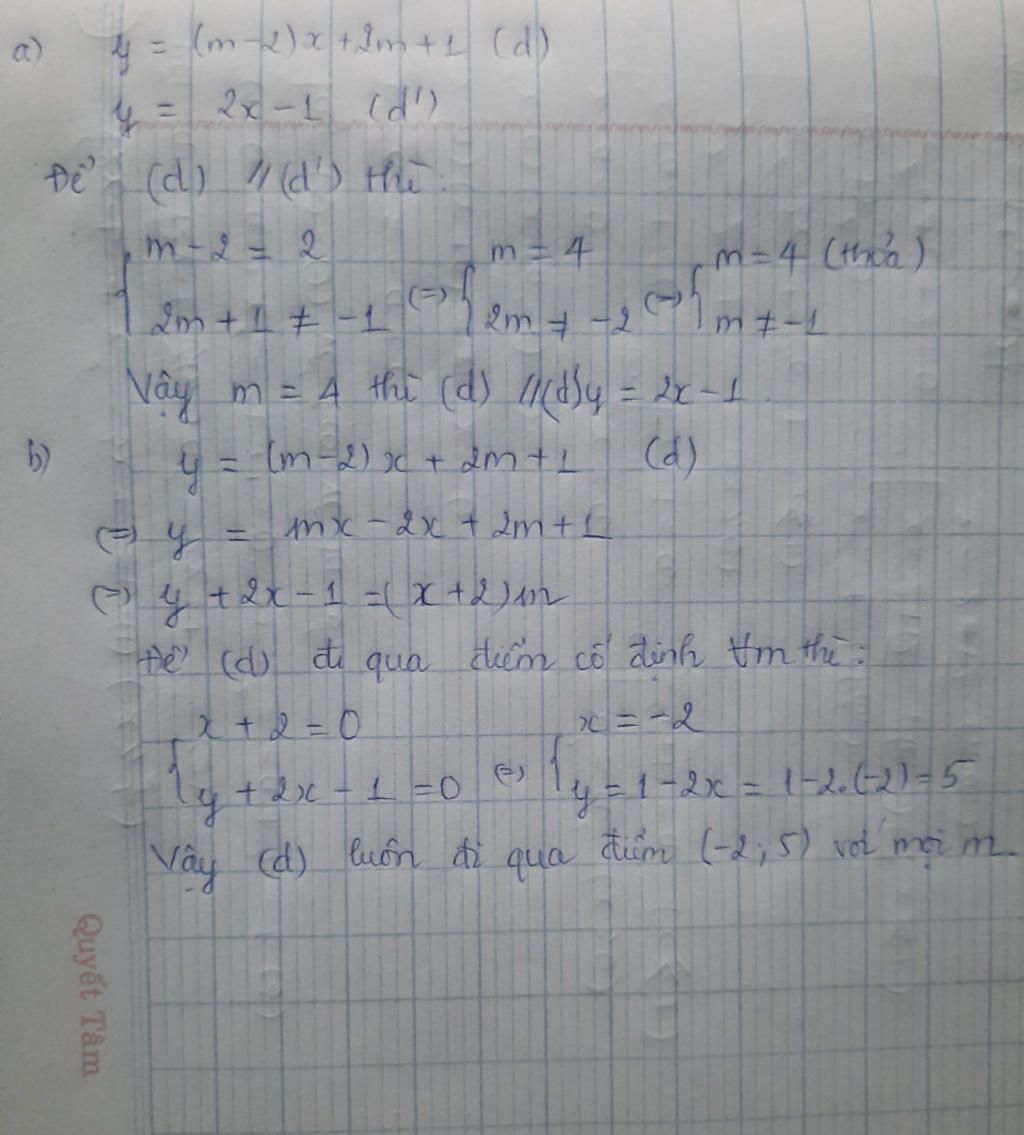 a) y = (m-2)x + 2m + 1 (d)
y = 2x - 1 (d')
Để (d) // (d') thì:
{ m - 2 = 2 ; 2m + 1 ≠ -1 (=) { m = 4 ; 2m ≠ -2 (=) { m = 4 (thỏa) ; m ≠ -1
Vậy m = 4 thì (d) // (d') y = 2x - 1.
b) y = (m-2)x + 2m + 1 (d)
(=) y = mx - 2x + 2m + 1
(=) y + 2x - 1 = (x+2)m
Để (d) đi qua điểm cố định ∀m thì:
{ x + 2 = 0 ; y + 2x - 1 = 0 (=) { x = -2 ; y = 1 - 2x = 1 - 2.(-2) = 5
Vậy (d) luôn đi qua điểm (-2; 5) với mọi m
Quyết Tâm